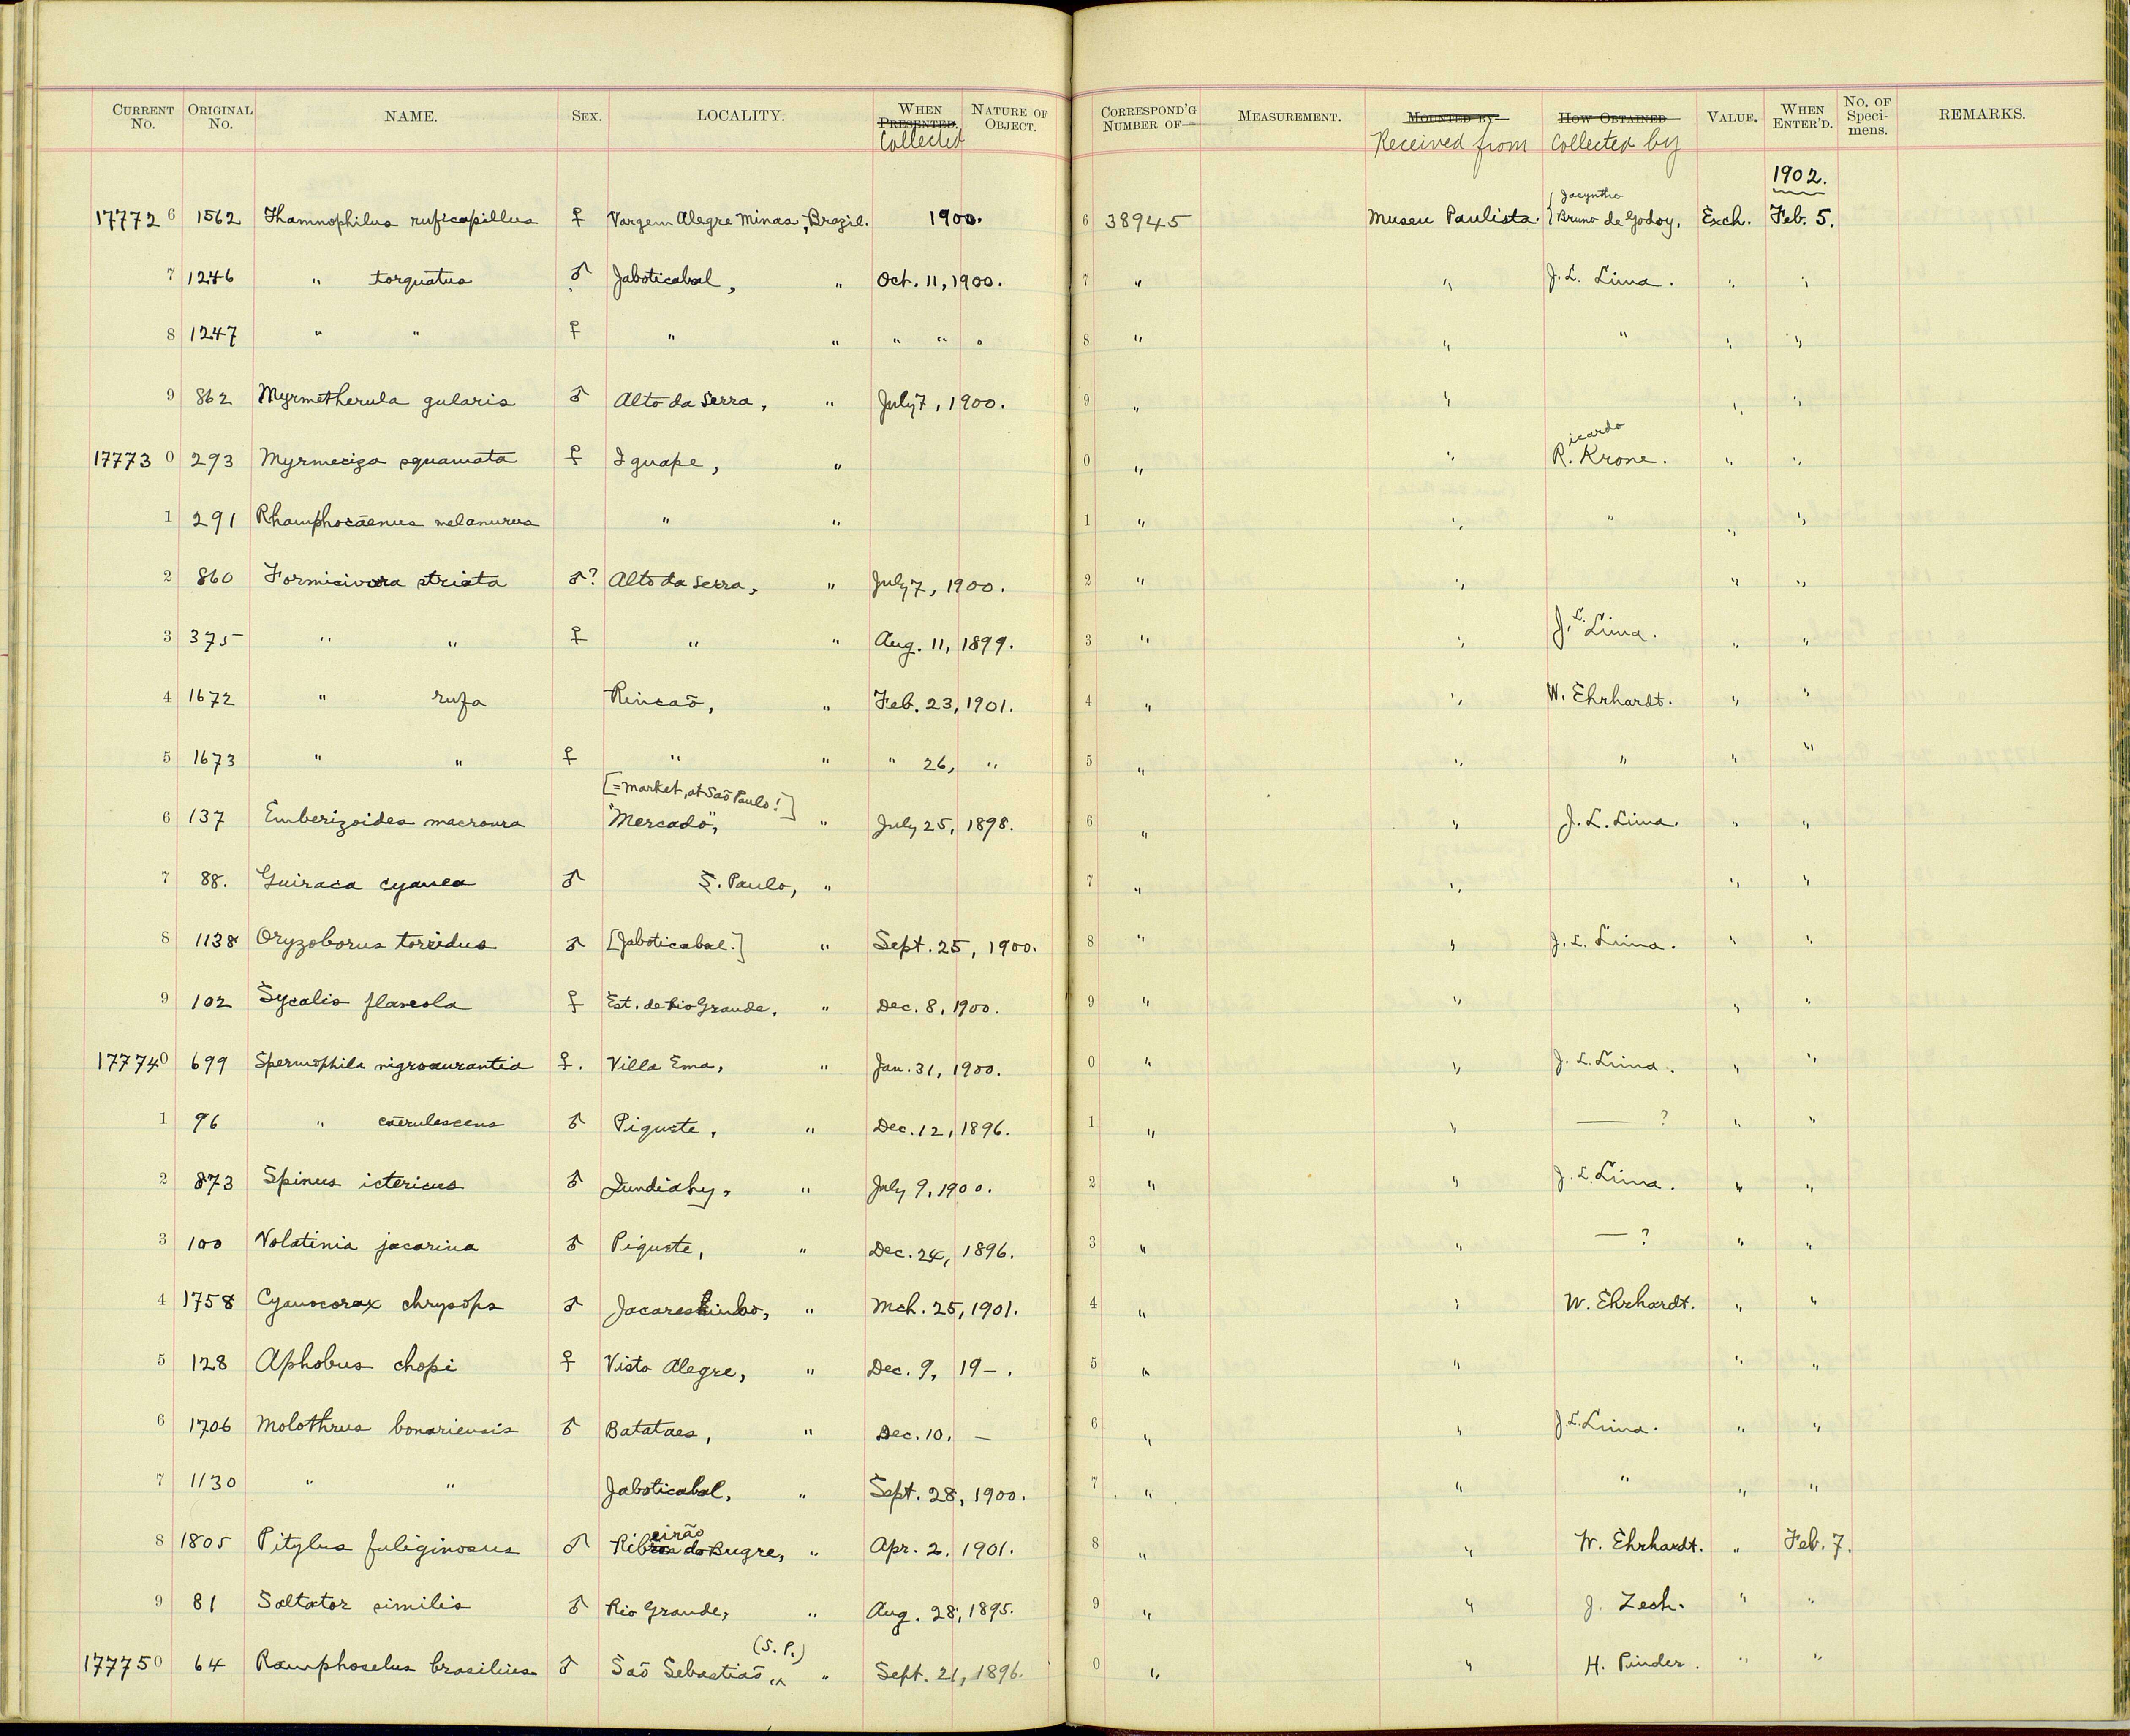 CURRENT No. ORIGINAL No. NAME. SEX. LOCALITY. WHEN PRESENTED. Collected NATURE OF OBJECT. CORRESPOND'G NUMBER OF— MEASUREMENT. MOUNTED BY Received from HOW OBTAINED Collected by VALUE. WHEN ENTER'D. No. OF Specimens. REMARKS.
1902.
17772 6 1562 Thamnophilus ruficapillus ♀ Vargem Alegre Minas, Brazil. 1900. 6 38945 Museu Paulista. Jacyntho Bruno de Godoy, Exch. Feb. 5.
7 1246 " torquatus ♂ Jaboticabal, " Oct. 11, 1900. 7 " " J. L. Lima. " "
8 1247 " " ♀ " " " " " 8 " " " " "
9 862 Myrmetherula gularis ♂ Alto da Serra, " July 7, 1900. 9 " " " "
17773 0 293 Myrmeciza squamata ♀ Iguape, " 0 " " Ricardo Krone. " "
1 291 Rhamphocaenus melanurus " " 1 " " " " "
2 860 Formicivora striata ♂? Alto da Serra, " July 7, 1900. 2 " " " "
3 375 " " ♀ " " Aug. 11, 1899. 3 " " J. L. Lima. " "
4 1672 " rufa Rincaõ, " Feb. 23, 1901. 4 " " W. Ehrhardt. " "
5 1673 " " ♀ " " " 26, " 5 " " " " "
[=market, at Saõ Paulo!]
6 137 Emberizoides macroura "Mercado", " July 25, 1898. 6 " " J. L. Lima. " "
7 88. Guiraca cyanea ♂ S. Paulo, " 7 " " " "
8 1138 Oryzoborus torridus ♂ [Jaboticabal.] " Sept. 25, 1900. 8 " " J. L. Lima. " "
9 102 Sycalis flaveola ♀ Est. de Rio Grande, " Dec. 8, 1900. 9 " " " "
17774 0 699 Spermophila nigroaurantia ♀. Villa Ema, " Jan. 31, 1900. 0 " " J. L. Lima. " "
1 96 " caerulescens ♂ Piquete, " Dec. 12, 1896. 1 " " — ? " "
2 873 Spinus ictericus ♂ Jundiahy, " July 9, 1900. 2 " " J. L. Lima. " "
3 100 Volatinia jacarina ♂ Piquete, " Dec. 24, 1896. 3 " " — ? " "
4 1758 Cyanocorax chrysops ♂ " Mch. 25, 1901. 4 " " W. Ehrhardt. " "
5 128 Aphobus chopi ♀ Visto Alegre, " Dec. 9, 19—. 5 " " " "
6 1706 Molothrus bonariensis ♂ Batataes, " Dec. 10, — 6 " " J. L. Lima. " "
7 1130 " " Jaboticabal, " Sept. 28, 1900. 7 " " " " "
8 1805 Pitylus fuliginosus ♂ Ribeirão do Bugre, " Apr. 2. 1901. 8 " " W. Ehrhardt. " Feb. 7.
9 81 Saltator similis ♂ Rio Grande, " Aug. 28, 1895. 9 " " J. Zech. " "
17775 0 64 Ramphocelus brasilius ♂ Saõ Sebastiaõ, (S. P.) " Sept. 21, 1896. 0 " " H. Pinder. " "